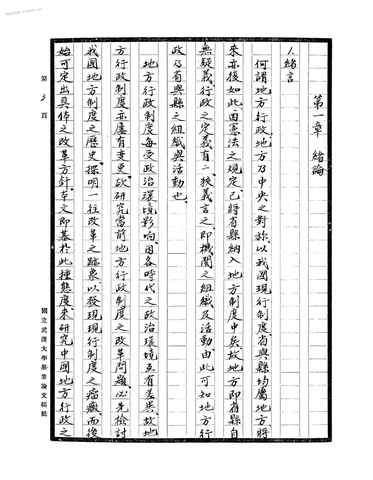 第一章 緒論
1.緒言
何謂地方行政,地方乃中央之對称,以我國現行制度,省與縣均屬地方,將
來亦復如此,因憲法之規定,已將省縣納入地方制度中矣,故地方即省縣自
無疑義,行政之定義有二,狹義言之,即機關之組織及活動,由此可知地方行
政乃省與縣之組織與活動也.
地方行政制度每受政治環境影响,因各時代之政治環境互有差異,故地
方行政制度亦屢有变更,欲研究當前地方行政制度之改革問題,必先檢討
我國地方制度之歷史,探明一往改革之跡象,以發現現行制度之癥瘕,而後
始可定出具体之改革方針,本文即基於此種態度來研究中國地方行政之
第 3 頁
國立武漢大學畢業論文稿紙